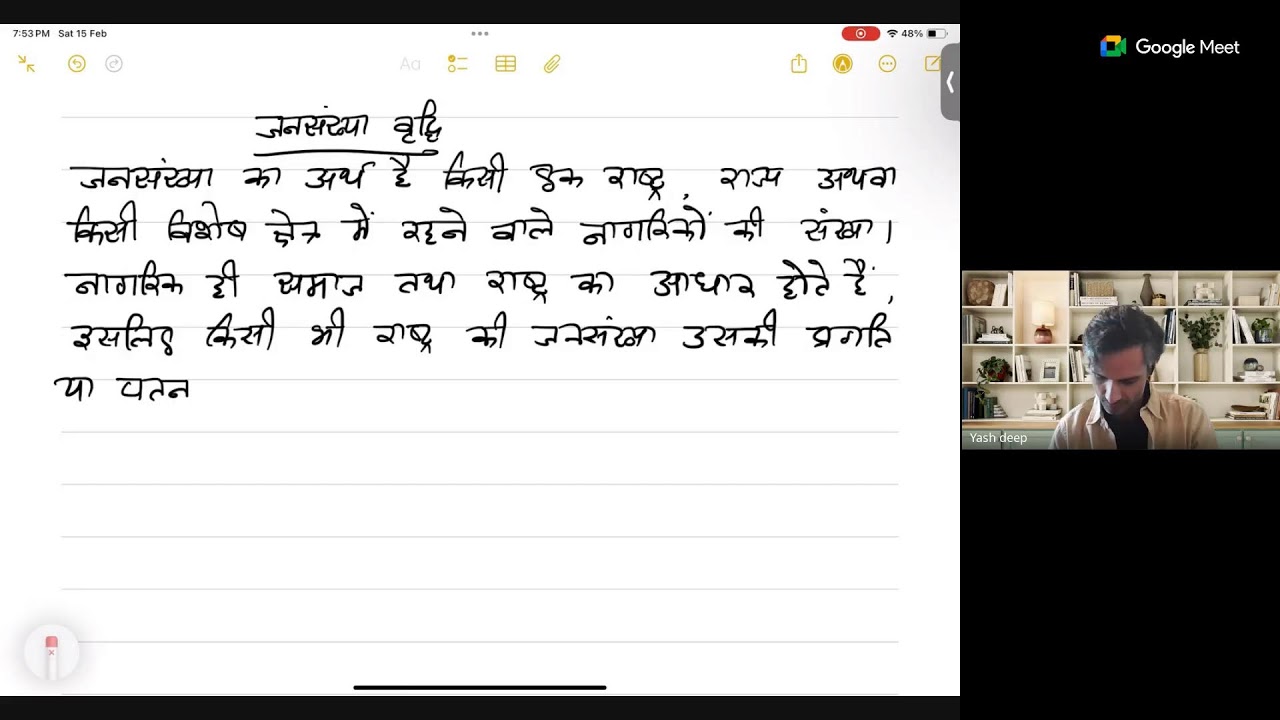 7:53 PM Sat 15 Feb
48%
Google Meet
Aa
जनसंख्या वृद्धि
जनसंख्या का अर्थ है किसी एक राष्ट्र, राज्य अथवा
किसी विशेष क्षेत्र में रहने वाले नागरिकों की संख्या।
नागरिक ही समाज तथा राष्ट्र का आधार होते हैं,
इसलिए किसी भी राष्ट्र की जनसंख्या उसकी प्रगति
या पतन
Yash deep